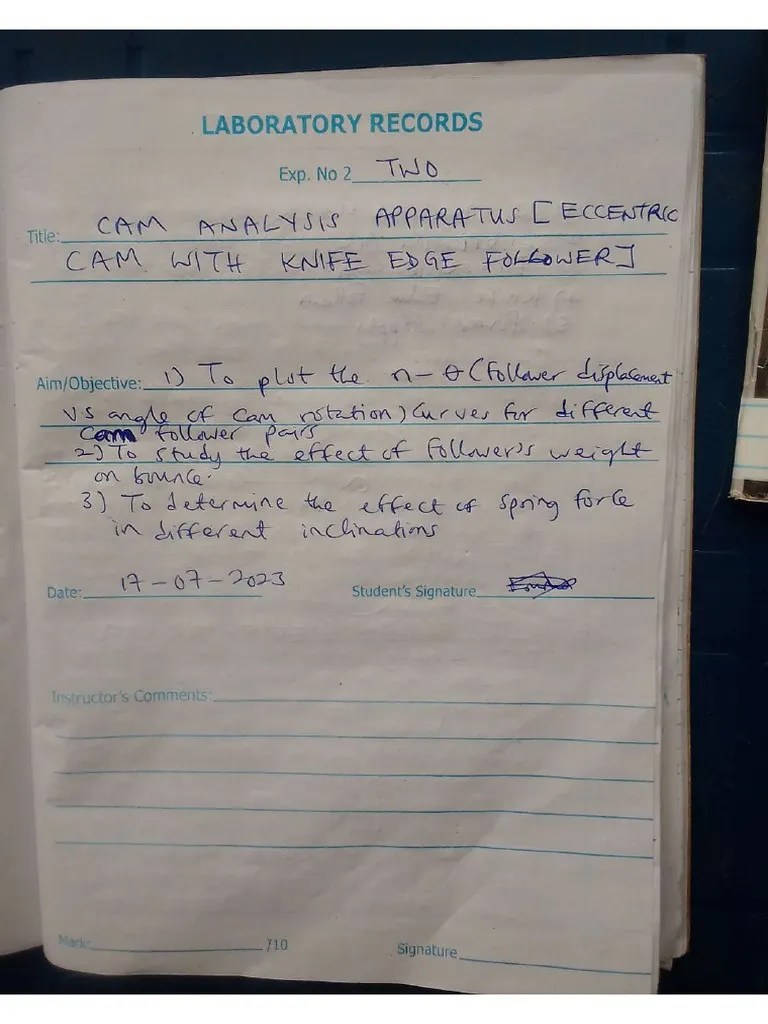 LABORATORY RECORDS
Exp. No 2 TWO
Title: CAM ANALYSIS APPARATUS [ECCENTRIC
CAM WITH KNIFE EDGE FOLLOWER]
Aim/Objective: 1) To plot the n-θ (follower displacement
vs angle of cam rotation) curves for different
cam follower pairs
2) To study the effect of follower's weight
on bounce.
3) To determine the effect of spring force
in different inclinations
Date: 17-07-2023 Student's Signature
Instructor's Comments:
Mark: /10 Signature